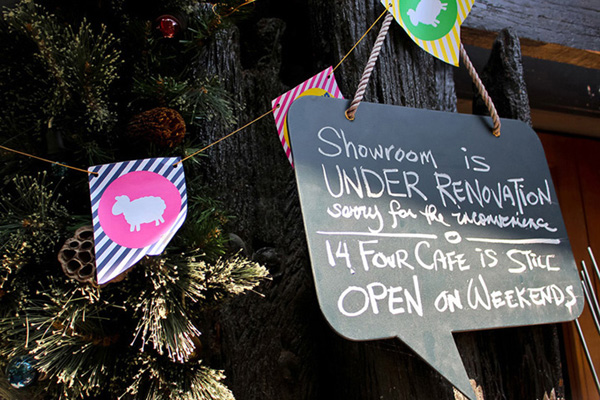 Showroom is
UNDER RENOVATION
sorry for the inconvenience
14 FOUR CAFE IS STILL
OPEN ON WEEKENDS